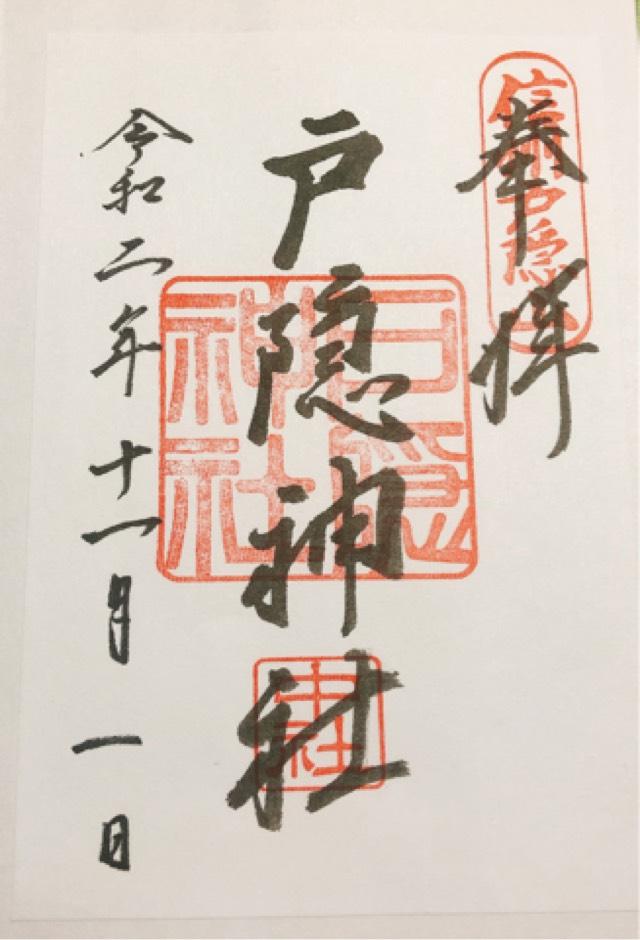 奉拝
信州戸隠山
戸隠神社
戸隠神社
中社
令和二年十一月一日